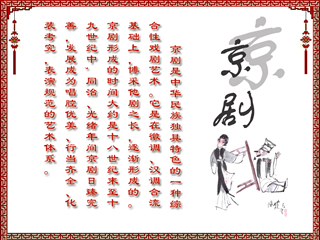 京
京剧
京剧是中华民族独具特色的一种综
合性戏剧艺术。它是在徽调、汉调合流
基础上,博采他剧之长,逐渐形成的。
京剧形成的时间大约是十八世纪末至十
九世纪中,同治、光绪年间京剧日臻完
善,发展成为唱腔优美、行当齐全、化
装考究、表演规范的艺术体系。